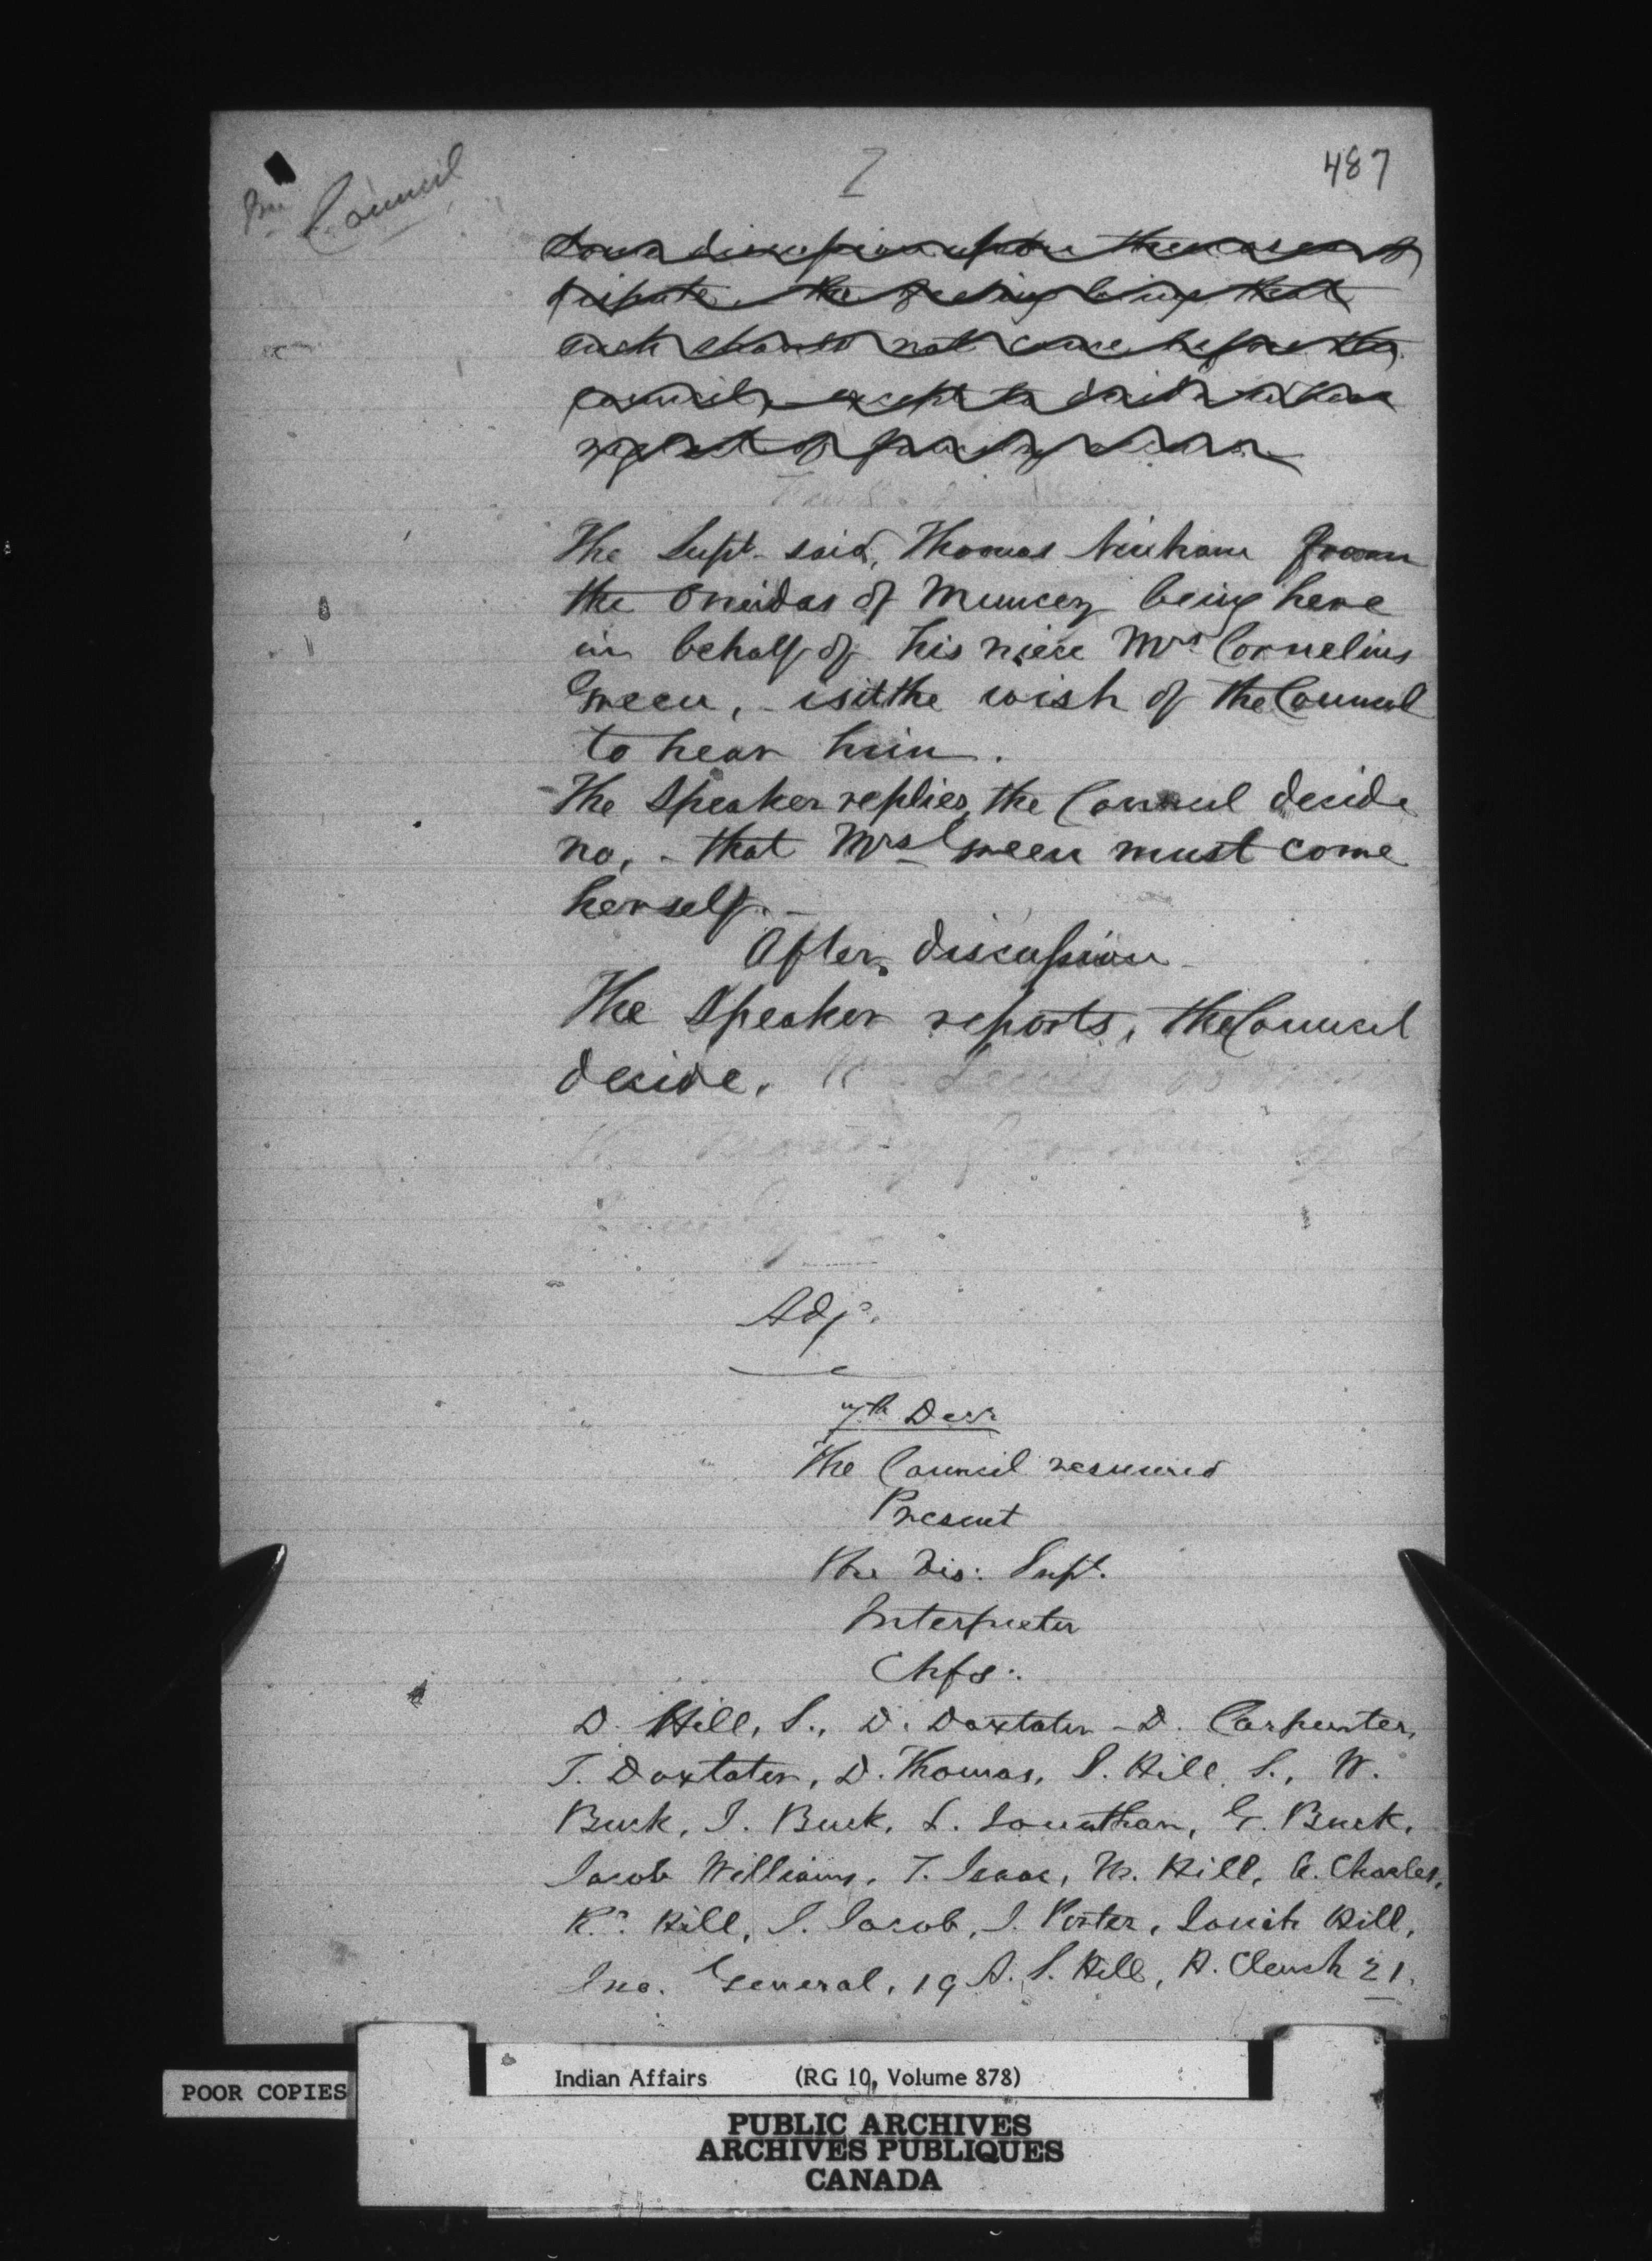 Council
7
487
dispute. the feeling being that
such should not come before the
council, except to decide as to the
right of possession
The Supt. said, Thomas Ninham from
the Oneidas of Muncey being here
in behalf of his niece Mrs Cornelius
Green, - is it the wish of the Council
to hear him.
The Speaker replies, the Council decide
no, - that Mrs Green must come
herself. -
After discussion -
The Speaker reports, the Council
decide.
Adjd.
7th Decr
The Council resumed
Present
The Vis: Supt.
Interpreter
Chfs:
D. Hill, S., D. Doxtater - D. Carpenter,
J. Doxtater, D. Thomas, S. Hill, S., W.
Buck, J. Buck, L. Jonathan, G. Buck,
Jacob Williams, T. Isaac, M. Hill, A. Charles,
Rd. Hill, J. Jacob, J. Porter, Hill,
Jno. General, 19 A. S. Hill, A. Clench 21.
POOR COPIES
Indian Affairs (RG 10, Volume 878)
PUBLIC ARCHIVES
ARCHIVES PUBLIQUES
CANADA